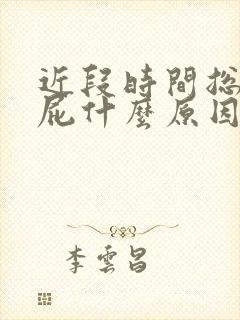 近段時間総
屁什麼原因
李雲昌